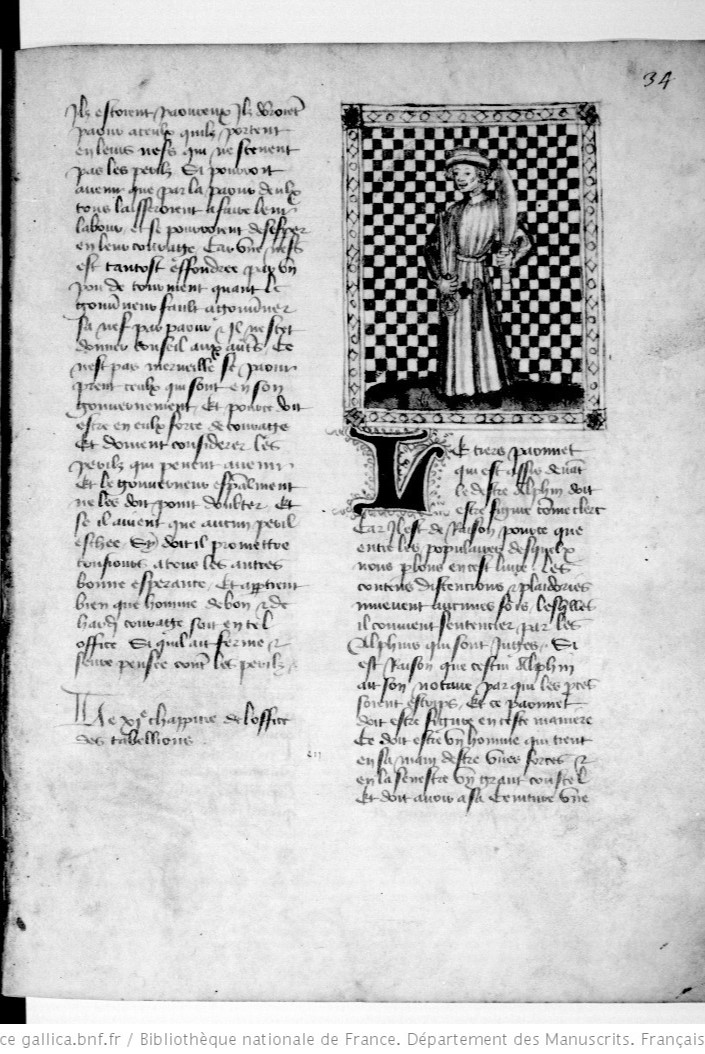 34
Ilz estoient paoureux Ilz dōroiēt
paour a ceulx quilz portent
en leurs nefs qui ne scevent
pas les perilz Si pourroit
avenir que par la paour deulx
tous laisseroient a faire leur
labour et se pourroient desesperer
en leur couraige Car une nefs
est tantost effondree par un
pou de tourment quant le
gouvneur fault a gouvner
sa nef par paour Il ne scet
donner conseil aux autrs Ce
nest pas merveille se paour
prent ceulx qui sont en son
gouvernement Et pource doit
estre en eulx force de couraige
Et doivent considerer les
perilz qui pevent avenir
Et le gouverneur espālment
ne les doit point doubter Et
se il avient que aucun peril
eschee Sy doit il promettre
tousiours a tous les autres
bonne esperance Et aptient
bien que homme de bon & de
hardi couraige soit en tel
office Si quil ait ferme &
seure pensee contre les perilz
Le xje chappitre de loffice
des tabellions
Le tiers paonnet
qui est assis devāt
le destre alphin doit
estre figure cōme clerc
Car Il est de Raison pource que
entre les populaires desquelx
nous plons en cest livre les
contens discencions & plaidories
mueuent aucunes fois lesqlles
il convient sentencier par les
Alphins qui sont Juges Si
est Raison que cestui alphin
ait son notaire par qui les pces
soient escrips Et ce paonnet
doit estre figure en ceste maniere
Ce doit estre un homme qui tient
en sa main destre unes forces &
en la senestre un grant coustel
Et doit avoir a sa ceinture une
ce gallica.bnf.fr / Bibliothèque nationale de France. Département des Manuscrits. Français